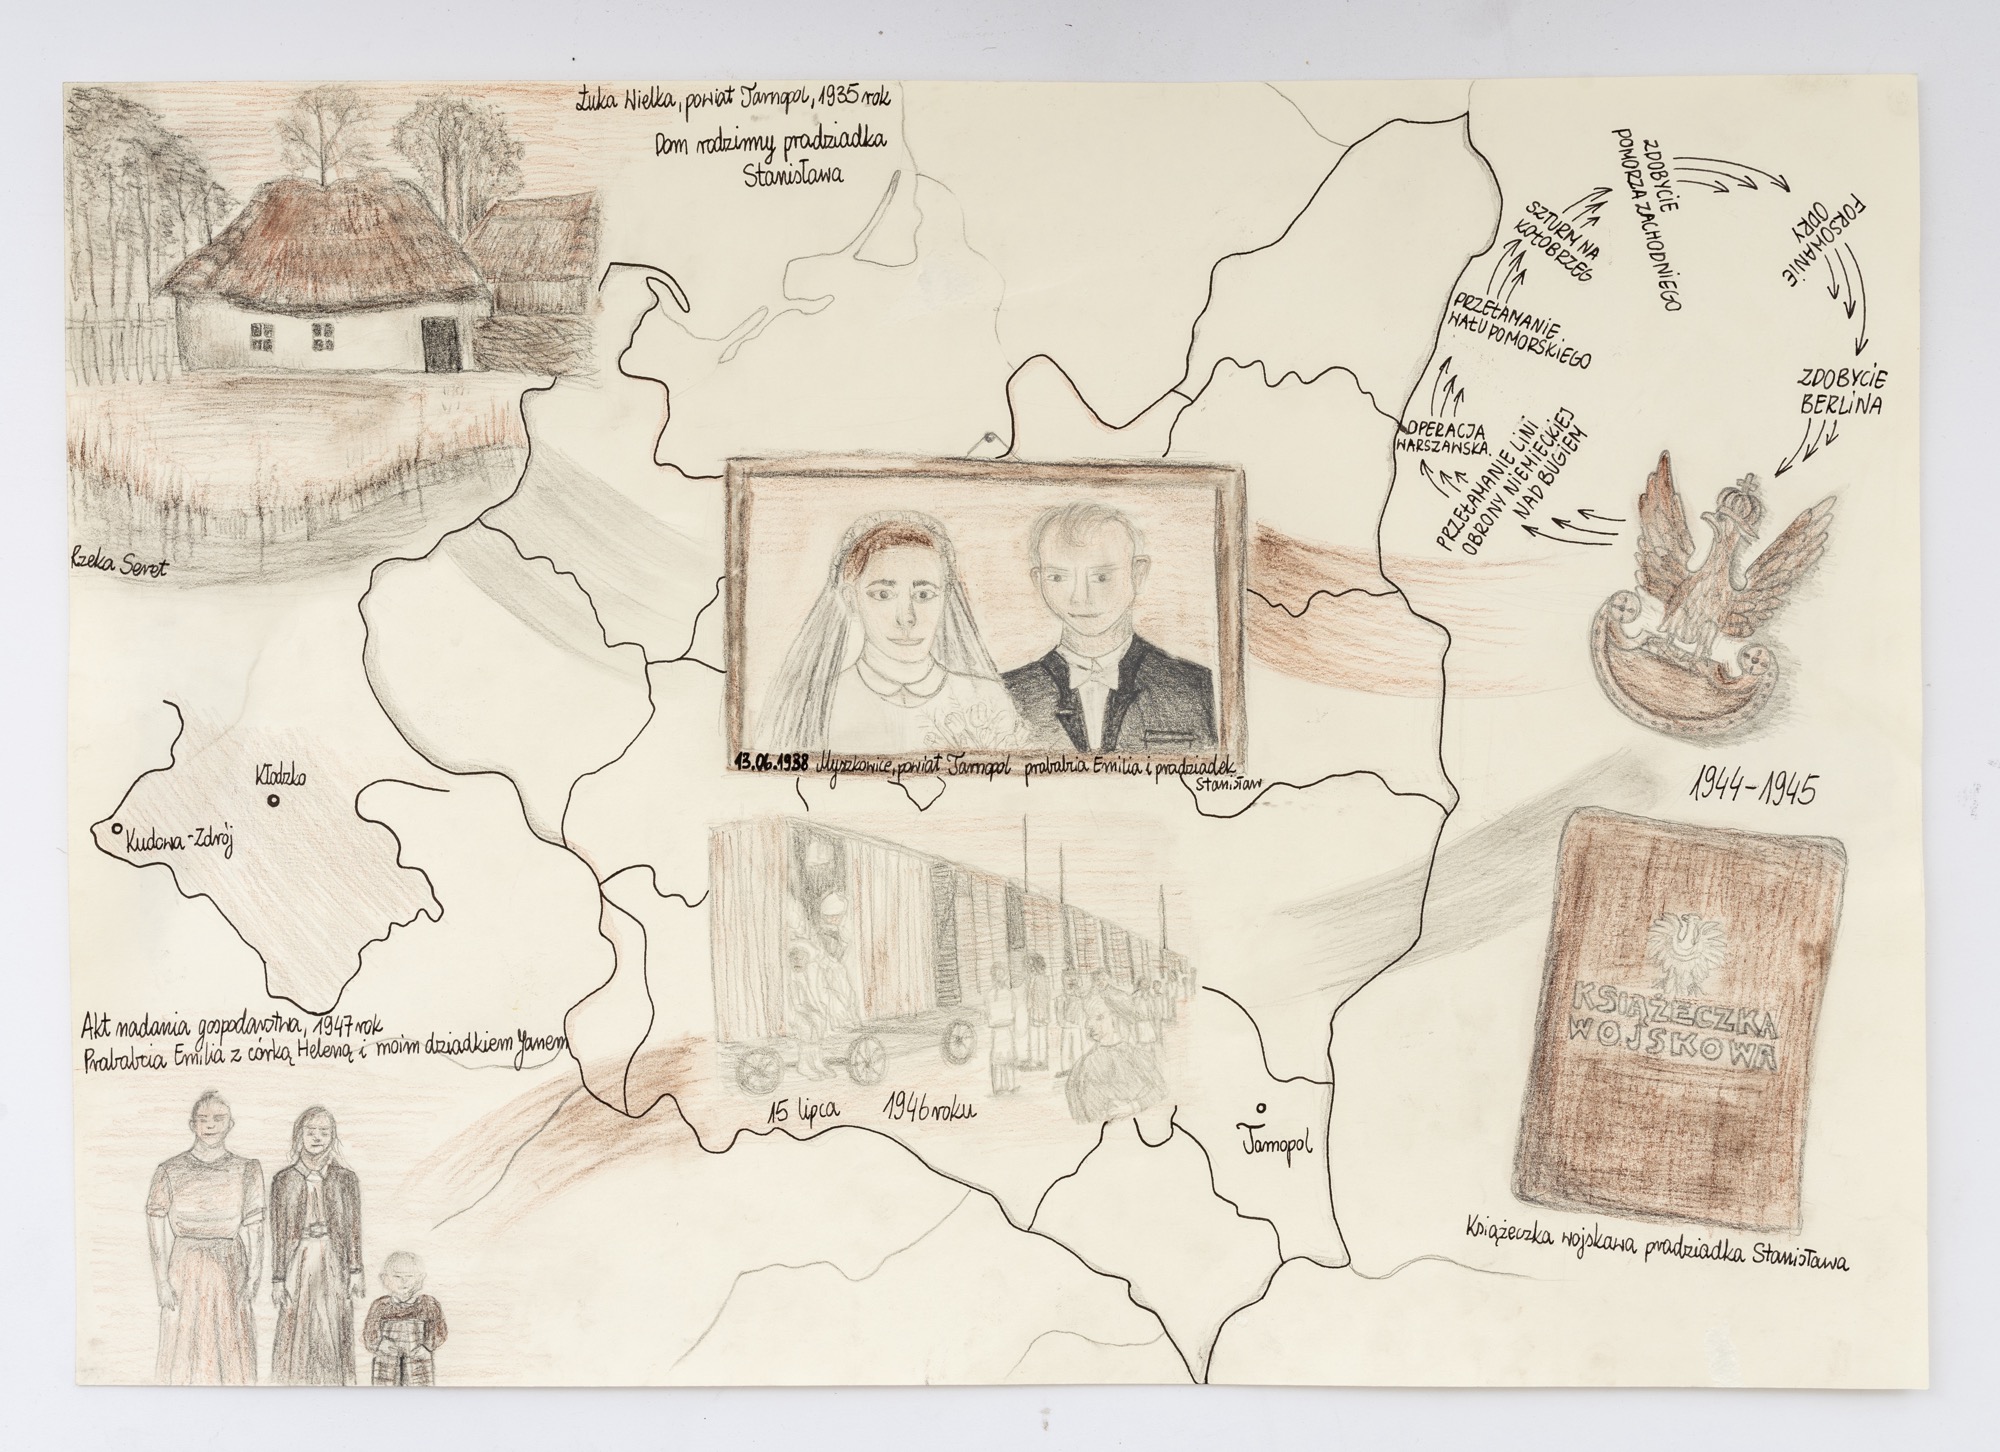 Łuka Wielka, powiat Tarnopol, 1935 rok
Dom rodzinny pradziadka
Stanisława
Rzeka Seret
ZDOBYCIE
POMORZA ZACHODNIEGO
FORSOWANIE
ODRY
SZTURM NA
KOŁOBRZEG
PRZEŁAMANIE
WAŁU POMORSKIEGO
ZDOBYCIE
BERLINA
OPERACJA
WARSZAWSKA.
PRZEŁAMANIE LINI
OBRONY NIEMIECKIEJ
NAD BUGIEM
13.06.1938 Myszkowice, powiat Tarnopol prababcia Emilia i pradziadek
Stanisław
1944-1945
Kłodzko
Kudowa-Zdrój
KSIĄŻECZKA
WOJSKOWA
Akt nadania gospodarstwa, 1947 rok
Prababcia Emilia z córką Heleną i moim dziadkiem Janem
15 lipca 1946 roku
Tarnopol
Książeczka wojskawa pradziadka Stanisława